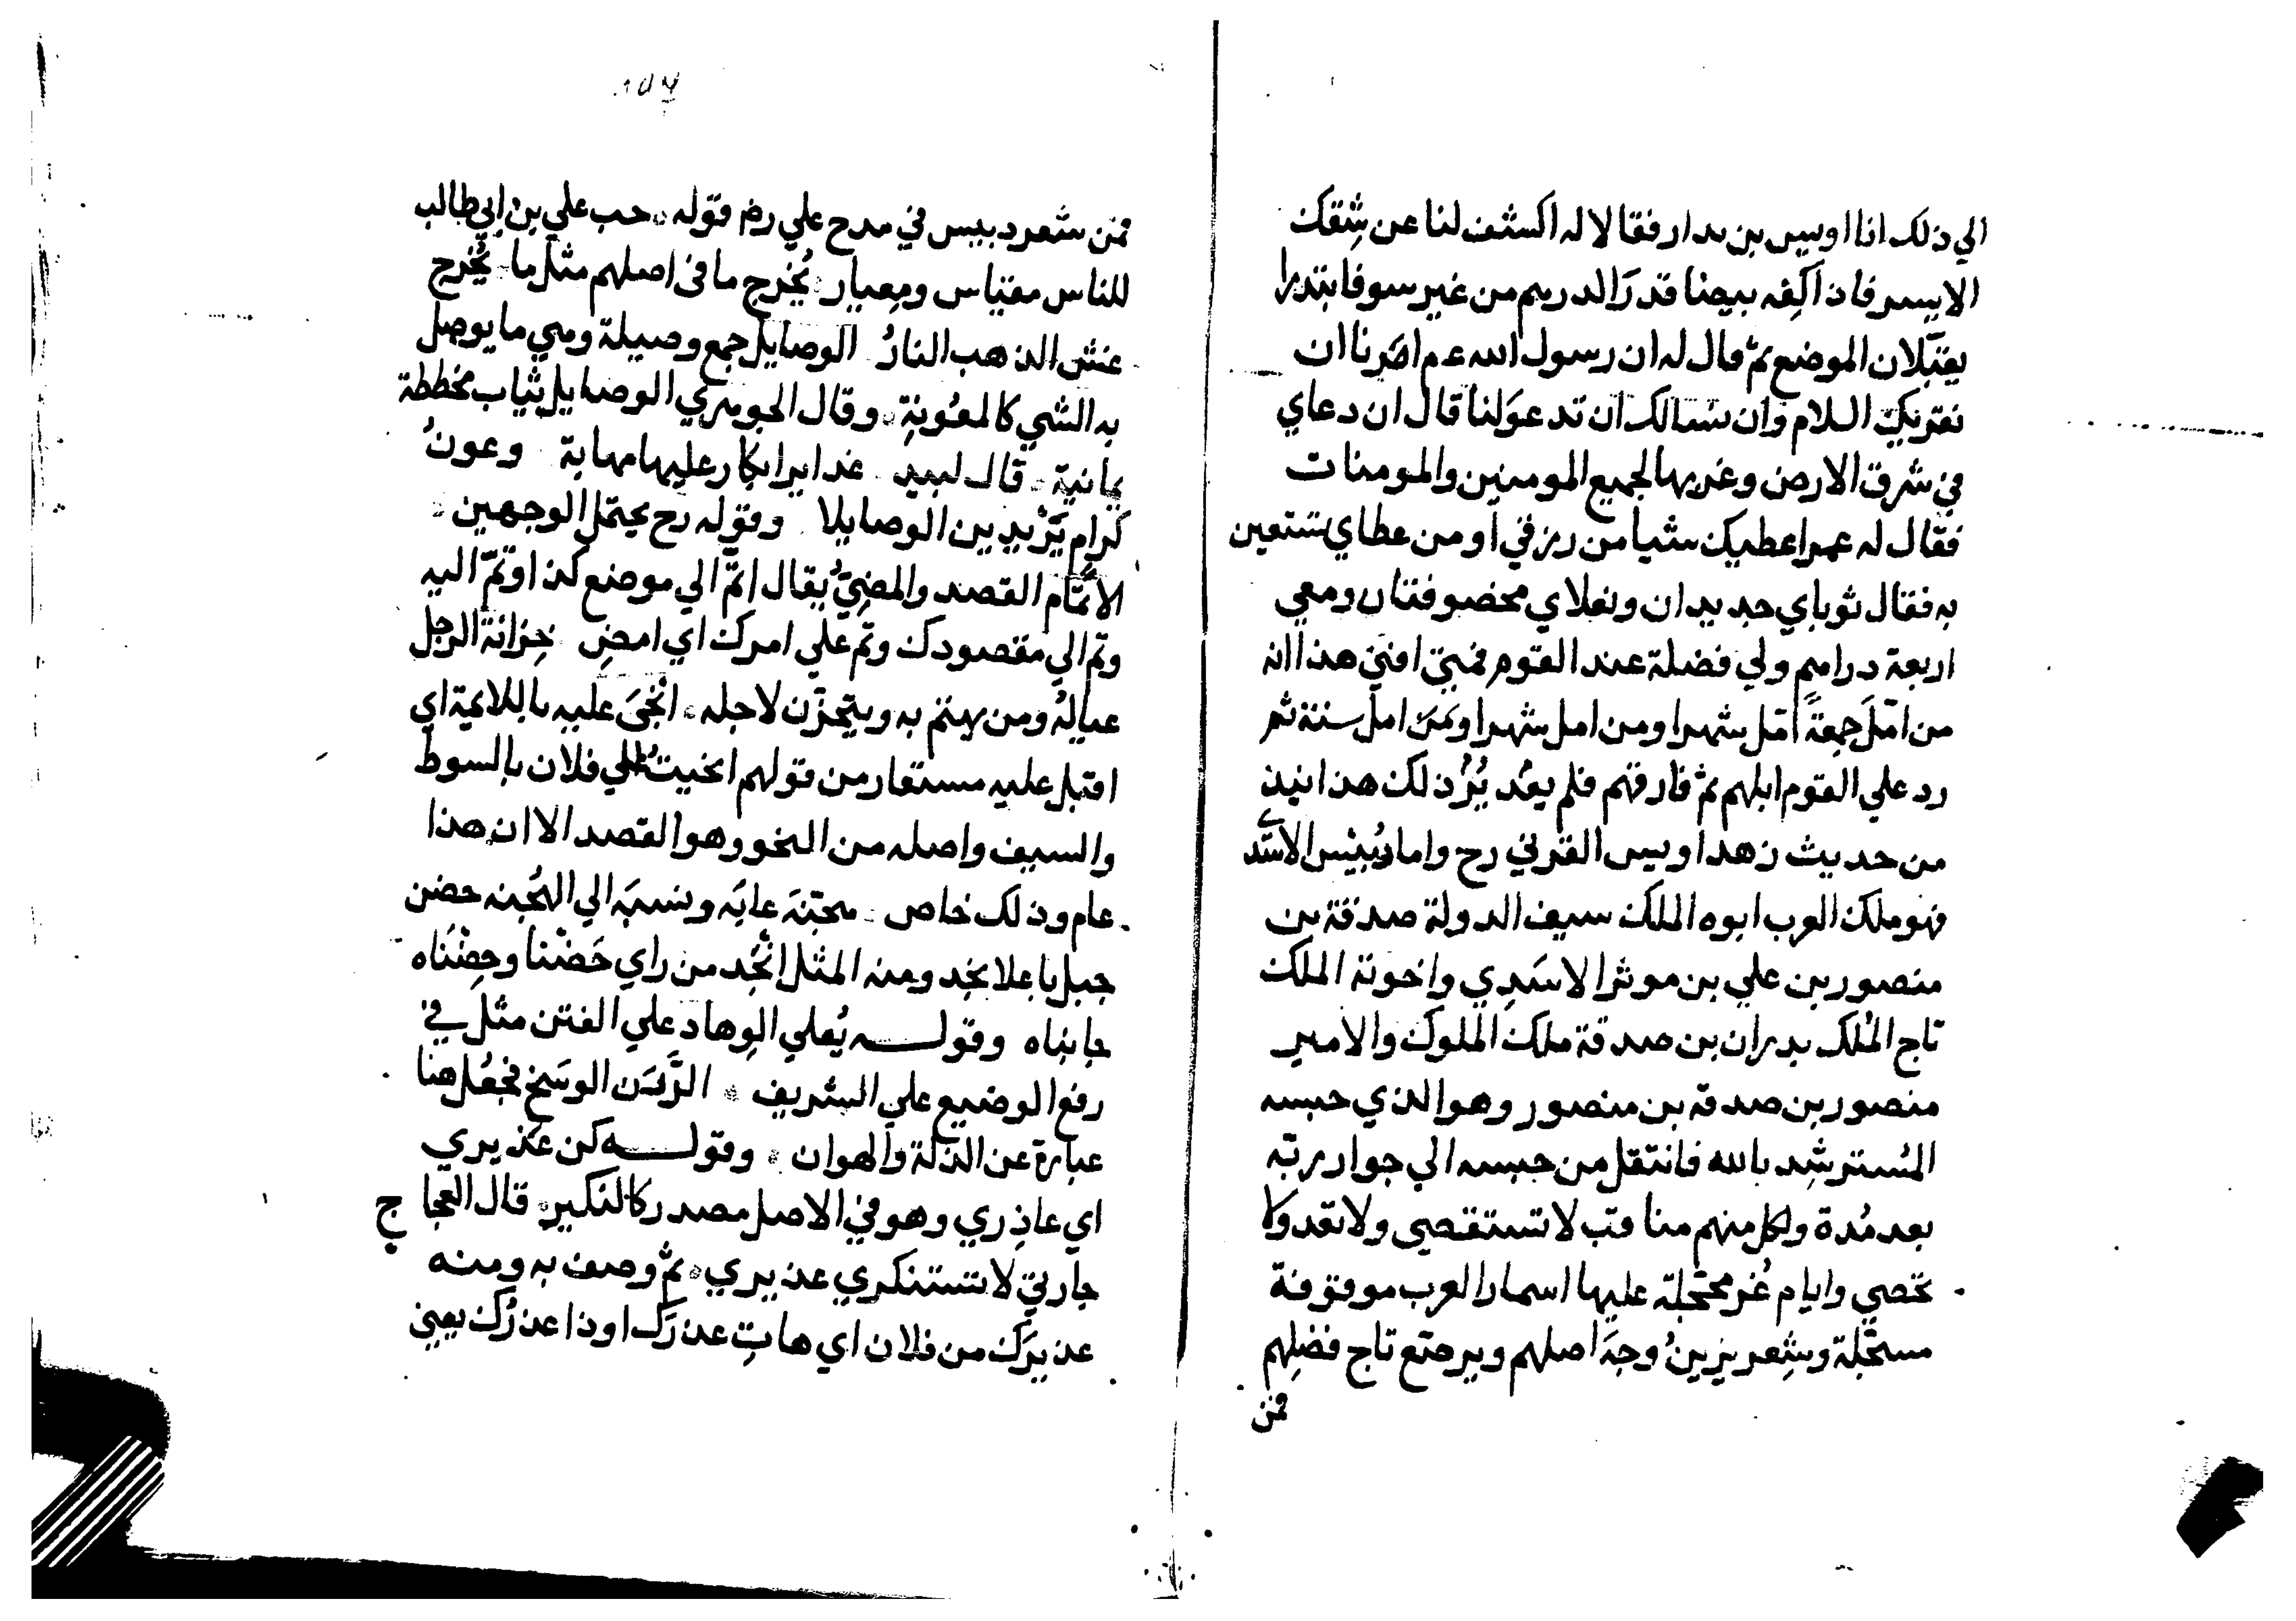 الي ذلك انا اويس بن بدار فقالا له اكشف لنا عن شِقك
الايسر فاذا كِفه بيضا قدرَ الدرهم من غير سو فابتدرا
يقبّلان الموضع ثم قال له ان رسول الله عم امَرنا ان
نقرئك السلام وان نسالك ان تدعوَ لنا قال ان دعاي
في شرق الارض وغربها لجميع المومنين والمومنات
فقال له عمر اعطيك شيا من رزقي او من عطاي تستعين
به فقال ثوباي جديدان ونعلاي مخصوفتان ومعي
اربعة دراهم ولي فضلة عند القوم فمتى افني هذا انه
من امّلَ جمعةً امّل شهرا ومن امل شهرا اومَن امل سنة ثم
رد علي القوم ابلهم ثم فارقهم فلم يعُد يُرُ ذلك هذا نبذ
من حديث زهد اويس القرني رح واما دُبَيْس الاسَدي
فهو ملك العرب ابوه الملك سيف الدولة صدقة بن
منصور بن علي بن موثر الاسَدِي واخوته الملك
تاج المُلك بدران بن صدقة ملك الملوك والامير
منصور بن صدقه بن منصور وهو الذي حبسه
المُسترشِد بالله فانتقل من حبسه الي جوار ربّه
بعد مُدة ولكل منهم مناقب لا تستقصي ولا تعد ولا
تحصي وايام غُر محجّلة عليها اسمار العرب موقوفة
مسجّلة وشِعر يزينُ وجهَ اصلهم ويرصّع تاج فضلِهم
فمن
فمن شعر دبيس في مدح علي رض قوله حب علي بن ابي طالب
للناس مقياس ومِعيار يُخرج ما في اصلهم مثل ما يُخرج
غش الذهب النارُ الوصايل جمع وصيلة وهي ما يوصل
به الشي كالمعُونةِ وقال الجوهري الوصايل ثياب مخططة
يمانية قال لبيد غداير ابكار عليها مهابة وعونُ
كرام يَرْتدين الوصايلا وقوله رح يحتمل الوجهين
الاتمام القصد والمضِيّ يقال اتمّ الي موضع كذا وتمّ اليه
وتم الي مقصودك وتم علي امرك اي امضِ حُزانة الرجل
عيالهُ ومن يهتم به ويتحزّن لاجله انْحَى عليه باللايمة اي
اقبل عليه مستعار من قولهم انحيتُ علي فلان بالسوط
والسيف واصله من النحو وهو القصد الا ان هذا
عام وذلك خاص هجّنَه عابَه ونسبَه الي الهُجنه حضن
جبل باعلا نجد ومنه المثل انْجَد من راي حَضَنا وحِضْنَاه
جانباه وقوله يُعلي الوِهاد علي القنن مثل في
رفع الوضيع علي الشريف الدَّرَن الوسَخ فجعُل هنا
عبارة عن الذلة والهوان وقوله كن عَذيري
اي عاذِري وهو في الاصل مصدر كالنكير قال العجاج
جارتي لا تستنكري عذيري ثم وصف به ومنه
عذيرَك من فلان اي هاتِ عذرَك او ذا عذرُك يعني